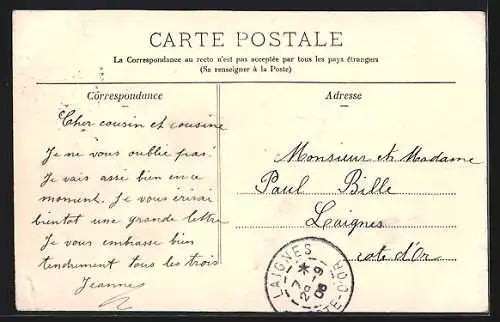 CARTE POSTALE
La Correspondance au recto n'est pas acceptée par tous les pays étrangers
(Se renseigner à la Poste)
Correspondance
Cher cousin et cousine
Je ne vous oublie pas!
Je vais assé bien en ce
moment. Je vous érirai
bientot une grande lettre
Je vous embrasse bien
tendrement tous les trois
Jeanne
Adresse
Monsieur et Madame
Paul Bille
Laignes
Cote d'Or
LAIGNES
7 *
29 -9
06
COTE-D'OR